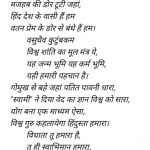 मजहब की डोर टूटी जहां,
हिंद देश के वासी हैं हम
वतन प्रेम के डोर से बंधे हैं हम।
वसुधैव कुटुंबकम
विश्व शांति का मूल मंत्र ये,
यह जन्म भूमि यह कर्म भूमि,
यही हमारी पहचान है।
गोमुख से बहे जहां पतित पावनी धारा,
"स्वामी" ने दिया वेद का ज्ञान विश्व को सारा,
योग बना एक माध्यम ऐसा,
विश्व गुरु कहलायेगा हिंदुस्ता हमारा।
विधाता तू हमारा है,
तू ही स्वाभिमान हमारा,